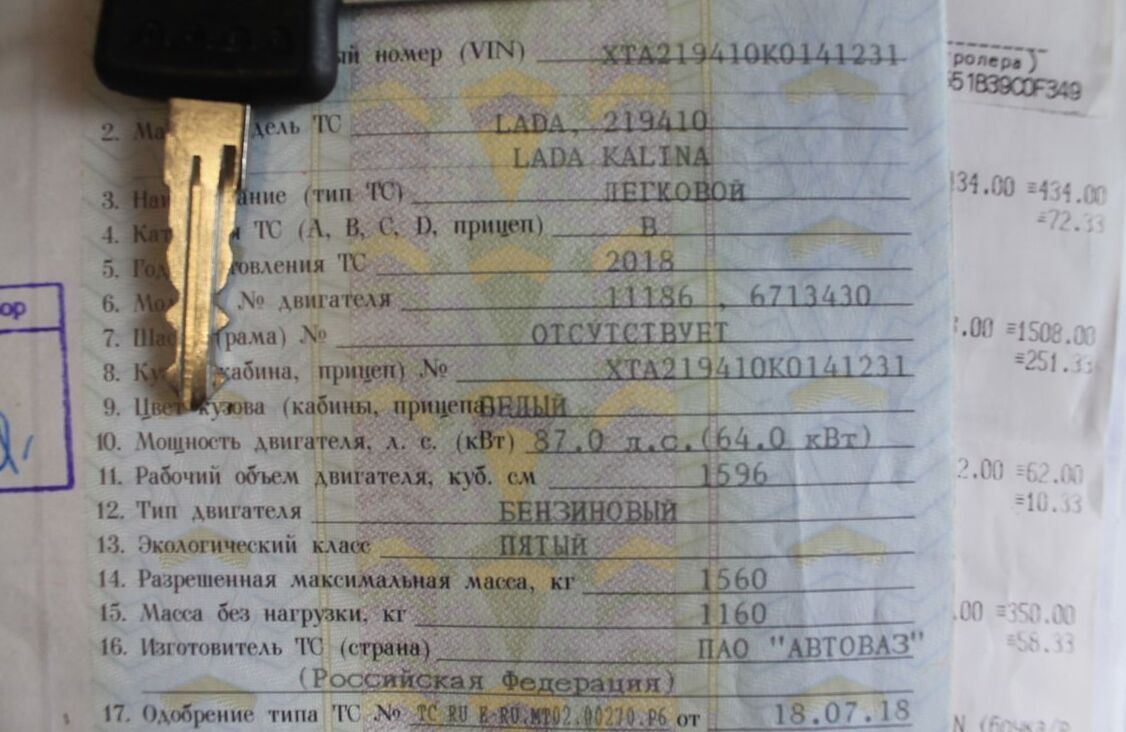 номер (VIN) XTA219410K0141231
2. дель ТС LADA, 219410
LADA KALINA
3. (тип ТС) ЛЕГКОВОЙ
4. ТС (A, B, C, D, прицеп) B
5. ТС 2018
6. № двигателя 11186 , 6713430
7. № ОТСУТСТВУЕТ
8. кабина, прицеп) № XTA219410K0141231
9. Цвет кузова (кабины, прицепа БЕЛЫЙ
10. Мощность двигателя, л. с. (кВт) 87.0 л.с.(64.0 кВт)
11. Рабочий объем двигателя, куб. см 1596
12. Тип двигателя БЕНЗИНОВЫЙ
13. Экологический класс ПЯТЫЙ
14. Разрешенная максимальная масса, кг 1560
15. Масса без нагрузки, кг 1160
16. Изготовитель ТС (страна) ПАО "АВТОВАЗ"
(Российская Федерация)
17. Одобрение типа ТС № ТС RU E-RU.МТ02.00270.Р6 от 18.07.18
ролера )
51B39C0F349
34.00 ≡434.00
≡72.33
.00 ≡1508.00
≡251.33
2.00 ≡62.00
≡10.33
.00 ≡350.00
≡58.33
ор